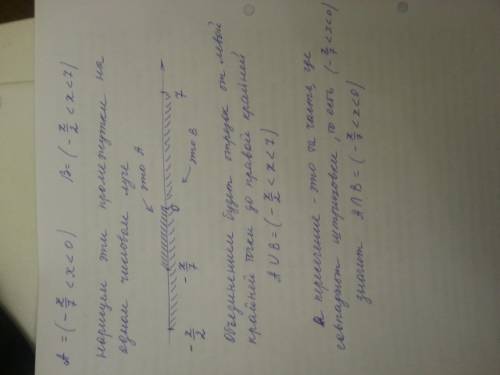 A = (-π/7 < x < 0)    B = (-π/2 < x < 7)
нарисуем эти промежутки на
одном числовом луче
это A
-π/2    -π/7    0    7
это B
Объединением будет отрезок от левой
крайней точки до правой крайней
A ∪ B = (-π/2 < x < 7)
а пересечение - это та часть, где
совпадают штриховки, то есть (-π/7 < x < 0)
значит A ∩ B = (-π/7 < x < 0)